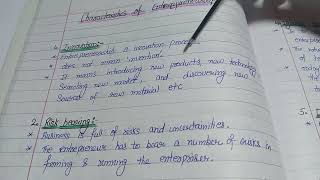 Characteristics of Entrepreneurship
1. Innovation:
* Entrepreneurship is innovation process.
* does not mean 'invention'.
* It means introducing new products, new technology
Searching new market, and discovering new
Sources of raw material etc.
2. Risk bearing:
* Business is full of risks and uncertainties.
* The entrepreneur has to bear a number of risks in
forming & running the enterprises.
3.
*
5.
*